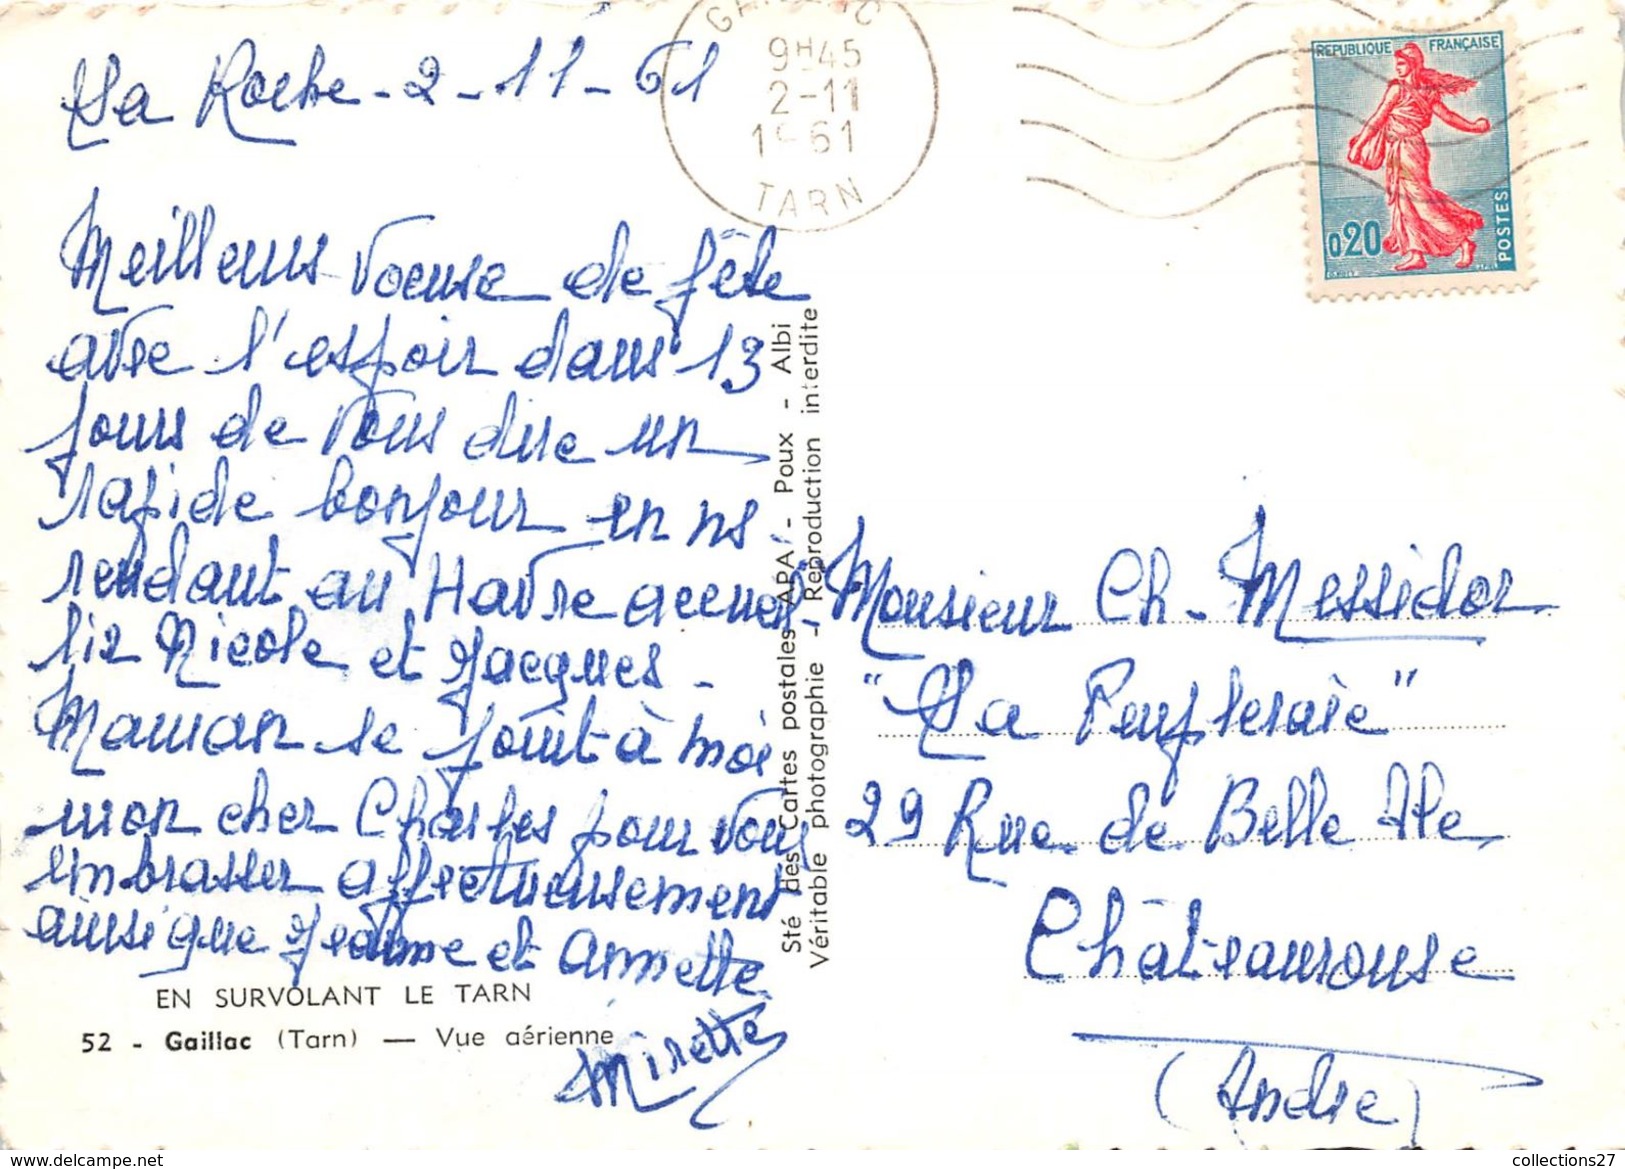 La Roche - 2 - 11 - 61
Meilleurs voeuse de fête
avec l'espoir dans 13
jours de vous dire un
rapide bonjour en ns
rendant au Havre accueil-
lir Nicole et Jacques -
Maman se joint à moi
mon cher Charles pour vous
embrasser affectueusement
ainsi que Jeanne et Annette
Mirette
EN SURVOLANT LE TARN
52 - Gaillac (Tarn) — Vue aérienne
Sté des Cartes postales APA - Poux - Albi
Véritable photographie - Reproduction interdite
GAILLAC
9H45
2-11
1961
TARN
REPUBLIQUE FRANÇAISE
0,20
POSTES
Monsieur Ch. Messidor
"La Peupleraie"
29 Rue de Belle Ile
Châteaurouse
(Indre)
collections27